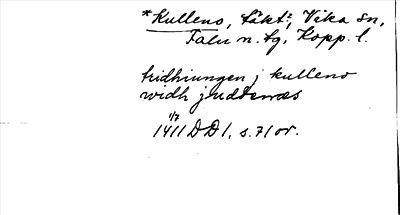 *Kulleno, täkt?, Vika sn,
Falu n. tg, Kopp. l.
tridhiungen j kulleno
widh judternæs
1/7
1411 DD1, s. 71 or.